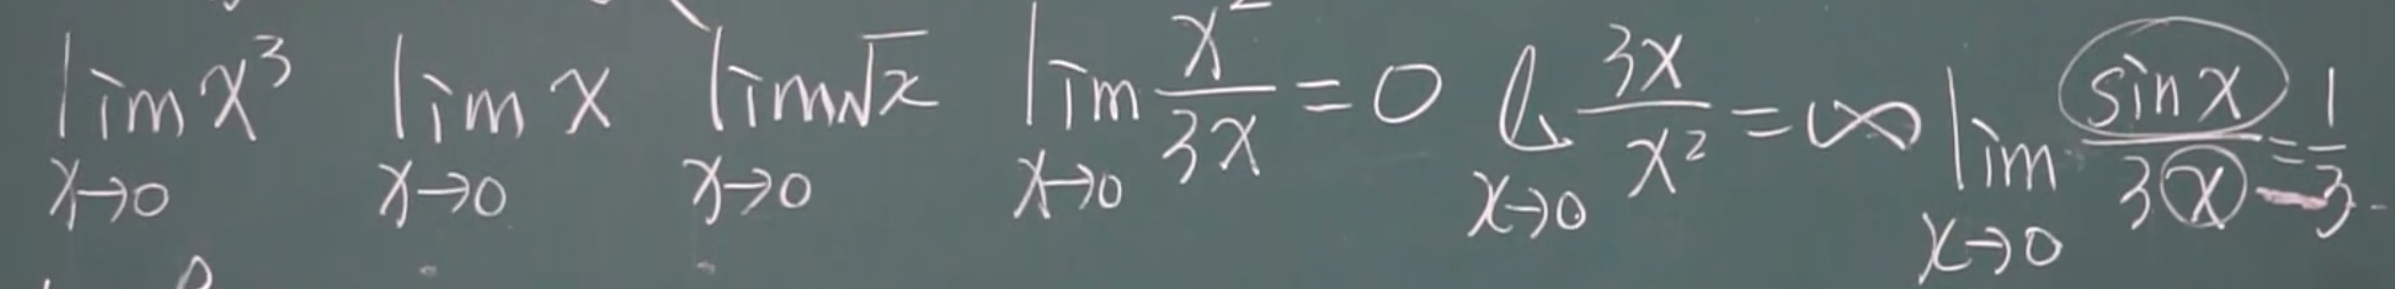 lim x→0 x³  lim x→0 x  lim x→0 √x  lim x→0 x²/3x = 0  l x→0 3x/x² = ∞  lim x→0 sin x/3x = 1/3